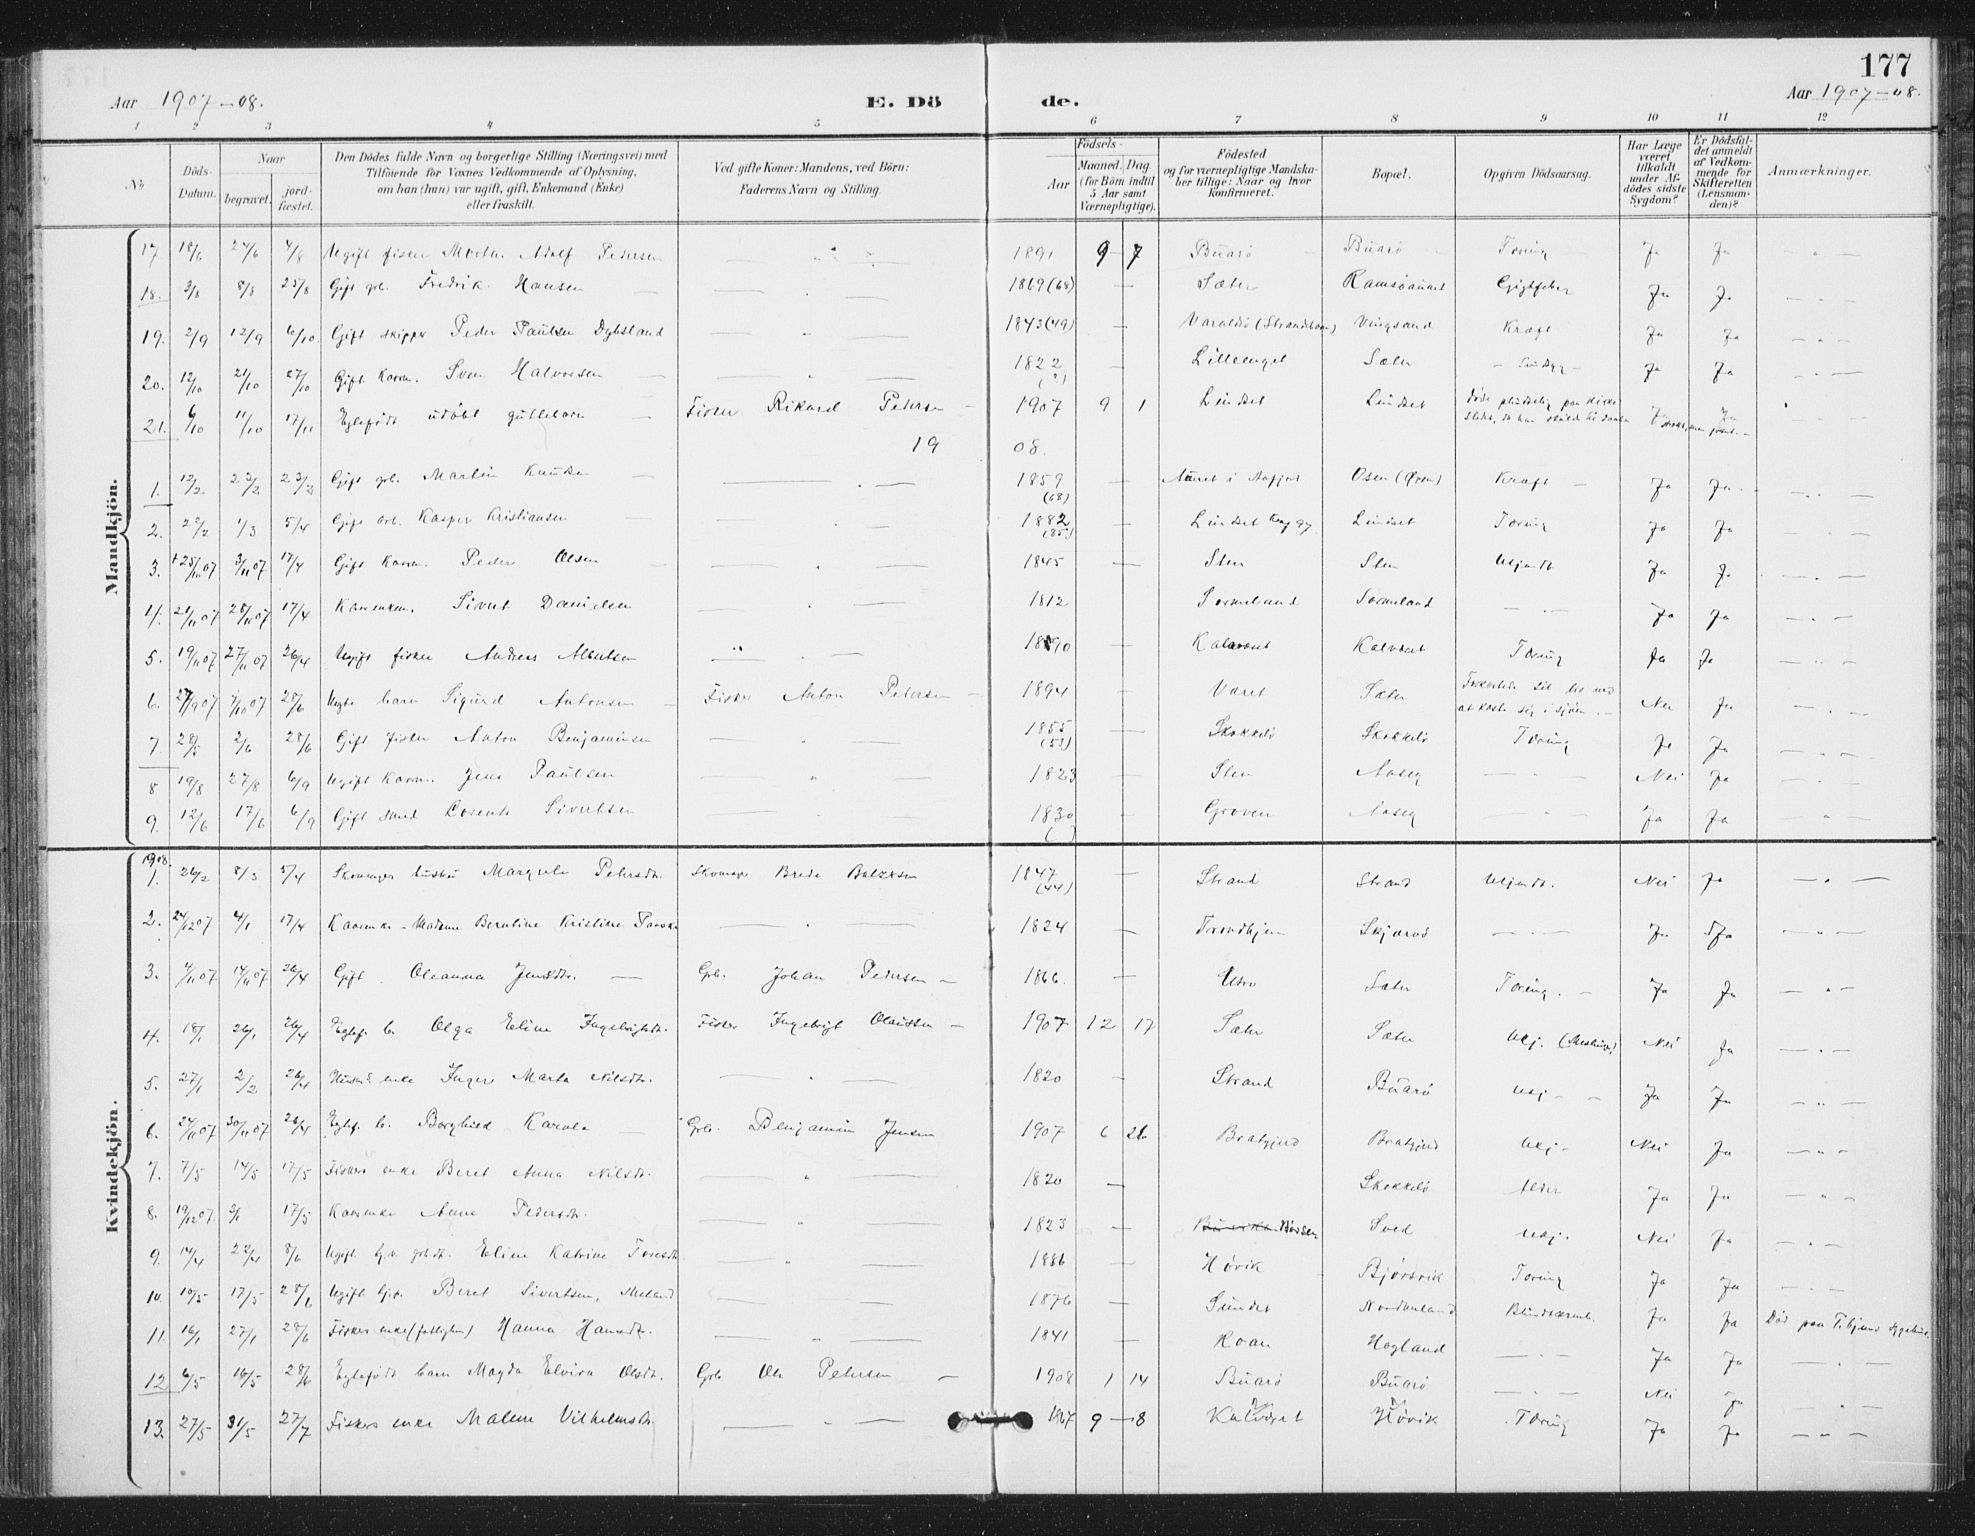 177
Aar 1907-08. E. Dö de. Aar 1907-08.
1 2 3 4 5 6 7 8 9 10 11 12
No Döds-Datum. Naar begravet. jord-fæstet. Den Dödes fulde Navn og borgerlige Stilling (Næringsvei) med Tilföiende for Voxnes Vedkommende af Oplysning, om han (hun) var ugift, gift, Enkemand (Enke) eller fraskilt. Ved gifte Koner: Mandens, ved Börn: Faderens Navn og Stilling. Födsels- Aar Maaned. Dag. (for Börn indtil 5 Aar samt Værnepligtige). Födested og for værnepligtige Mandskaber tillige: Naar og hvor konfirmeret. Bopæl. Opgiven Dödsaarsag. Har Læge været tilkaldt under Afdödes sidste Sygdom? Er Dödsfaldet anmeldt af Vedkommende for Skifteretten (Lensmanden)? Anmærkninger.
Mandkjön.
17 18/6 24/6 4/8 Ugift fisker Morten Adolf Pedersen 1891 9 7 Buarö Buarö Tæring Ja Ja
18. 3/8 8/8 25/8 Gift grb. Fredrik Hansen 1869 (68) Sæter Ramsöaunet Gigtfeber Ja Ja
19. 2/9 12/9 6/10 Gift skipper Peder Paulsen Dybsland 1843 (49) Varaldsö (Strandbarm) Vingsand Kræft Ja Ja
20. 12/10 21/10 27/10 Gift Kaarm. Sven Halvorsen 1822 (?) Lilleenget Sæter Ja Ja
21. 6/10 11/10 17/11 Egtefödt udöbt guttebarn Fisker Rikard Petersen 1907 9 1 Lindset Lindset Döde pludselig paa kirke Ja Ja
1908.
1. 12/2 22/2 23/2 Gift grb. Martin Knudsen 1859 (68) Aunet i Aafjord Osen (Ören) Kræft Ja Ja
2. 22/2 1/3 5/4 Gift arb. Kasper Kristiansen 1882 (85) Lindset Lindset Tæring Ja Ja
3. +25/10 07 3/11 07 17/4 Gift Kaarm. Peder Olsen 1845 Sten Sten Ukjendt Ja Ja
4. 21/11 07 28/11 07 17/4 Kaarenkem. Sivert Danielsen 1812 Sörmeland Sörmeland Ja Ja
5. 19/11 07 27/11 07 26/4 Ugift fisker Andreas Albertsen 1890 Kalvöset Kalvöset Tæring Ja Ja
6. 27/9 07 7/10 07 28/6 Uegte barn Sigurd Antonsen Fisker Anton Petersen 1894 Været Sæter Forkortede sit liv ved at kaste sig i sjöen. Nei Ja
7. 28/5 2/6 28/6 Gift fisker Anton Benjaminsen 1855 (53) Skokkelö Skokkelö Tæring Ja Ja
8 19/8 27/8 6/9 Ugift Kaarm. Jens Paulsen 1823 Sten Aaseg Nei Ja
9. 12/6 17/6 6/9 Gift smed Lorents Sivertsen 1830 ( ) Groven Aaseg Ja Ja
Kvindekjön.
1908.
1. 26/2 8/3 5/4 Skomager hustru Margrete Petersdtr. Skomager Brede Baltzersen 1847 (44) Strand Strand Ukjendt. Nei Ja
2. 24/12 07 4/1 17/4 Kaarenke - Madame Berntine Kristine 1824 Trondhjem Skjærvö Ja Ja
3. 7/11 07 14/11 07 26/4 Gift Oleanna Jensdtr. Grb. Johan Pedersen 1866. Utro Sæter Tæring. Ja Ja
4. 18/1 26/1 26/4 Egtef. b. Olga Eline Ingebrigtsdtr. Fisker Ingebrigt Olaussen 1907 12 17 Sæter Sæter Ukj. Nei Ja
5. 27/1 2/2 26/4 Husmd. enke Inger Marta Nilsdtr. 1820 Strand Buarö Ukj. Ja Ja
6. 24/11 07 30/11 07 26/4 Egtef. b. Borghild Karola Grb. Benjamin Jensen 1907 6 26 Bratjerd Bratjerd Ukj. Nei Ja
7. 7/5 14/5 17/5 Fiskers enke Beret Anna Nilsdtr. 1820 Skokkelö Alder Ja Ja
8. 19/12 07. 3/1 17/5 Kaarenke Anne Pedersdtr. 1823 Bessen Sved Ukj. Nei Ja
9. 14/4 22/4 8/6 Ugift Eline Katrine 1886 Hövik Björsvik Tæring Ja Ja
10. 10/5 17/5 28/6 Ugift Beret Sivertsen, Meland 1876 Sundet Nordmeland Blindtarmb. Ja Ja Död paa Sygehus.
11. 16/1 27/1 28/6 Fiskers enke (fattiglem) Hanna Hansdtr. 1841 Roan Hogland Ja Ja
12 6/5 16/5 28/6 Egtefödt barn Magda Elvira Olsdtr. Grb. Ole Petersen 1908 1 14 Buarö Buarö Nei Ja
13. 27/5 31/5 27/7 Fiskers enke Malene Vilhelmsdtr. 9 8 Kalvöset Hövik Tæring Ja Ja